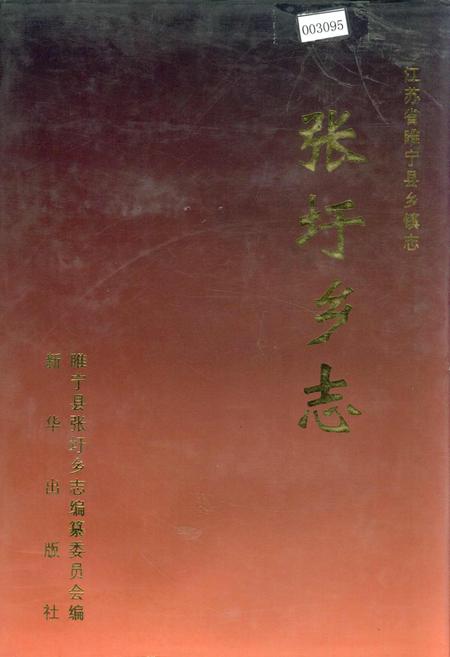 003095
江苏省睢宁县乡镇志
张圩乡志
睢宁县张圩乡志编纂委员会编
新华出版社